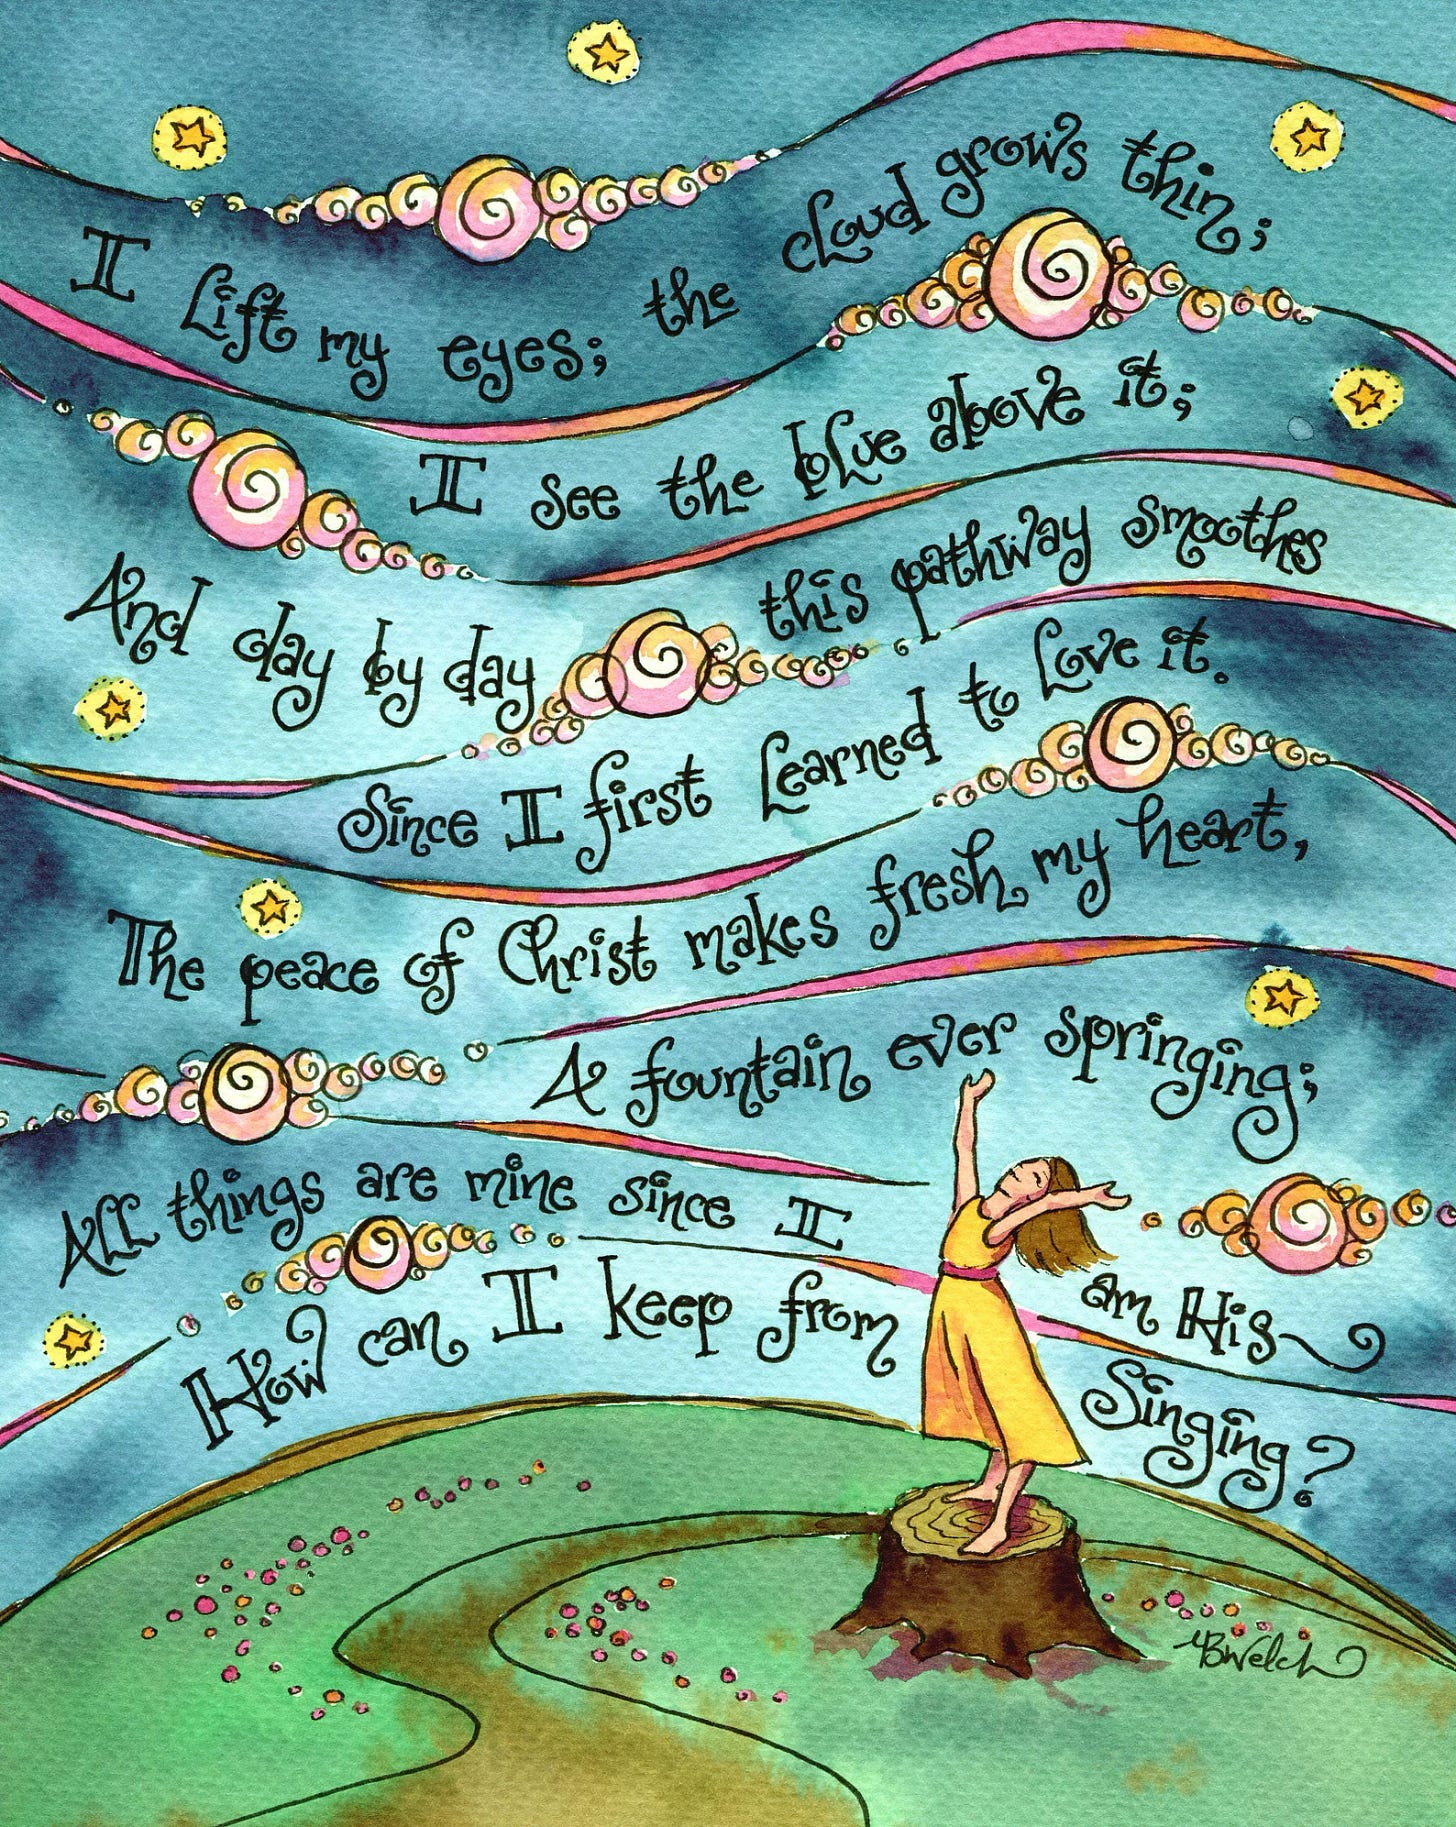 I Lift my eyes; the cloud grows thin;
I see the blue above it;
And day by day this pathway smoothes
Since I first Learned to Love it.
The peace of Christ makes fresh my heart,
A fountain ever springing;
All things are mine since I am His
How can I keep from Singing?
BWelch